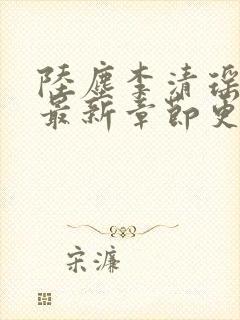 陸塵李清瑤
最新章節更
宋濂